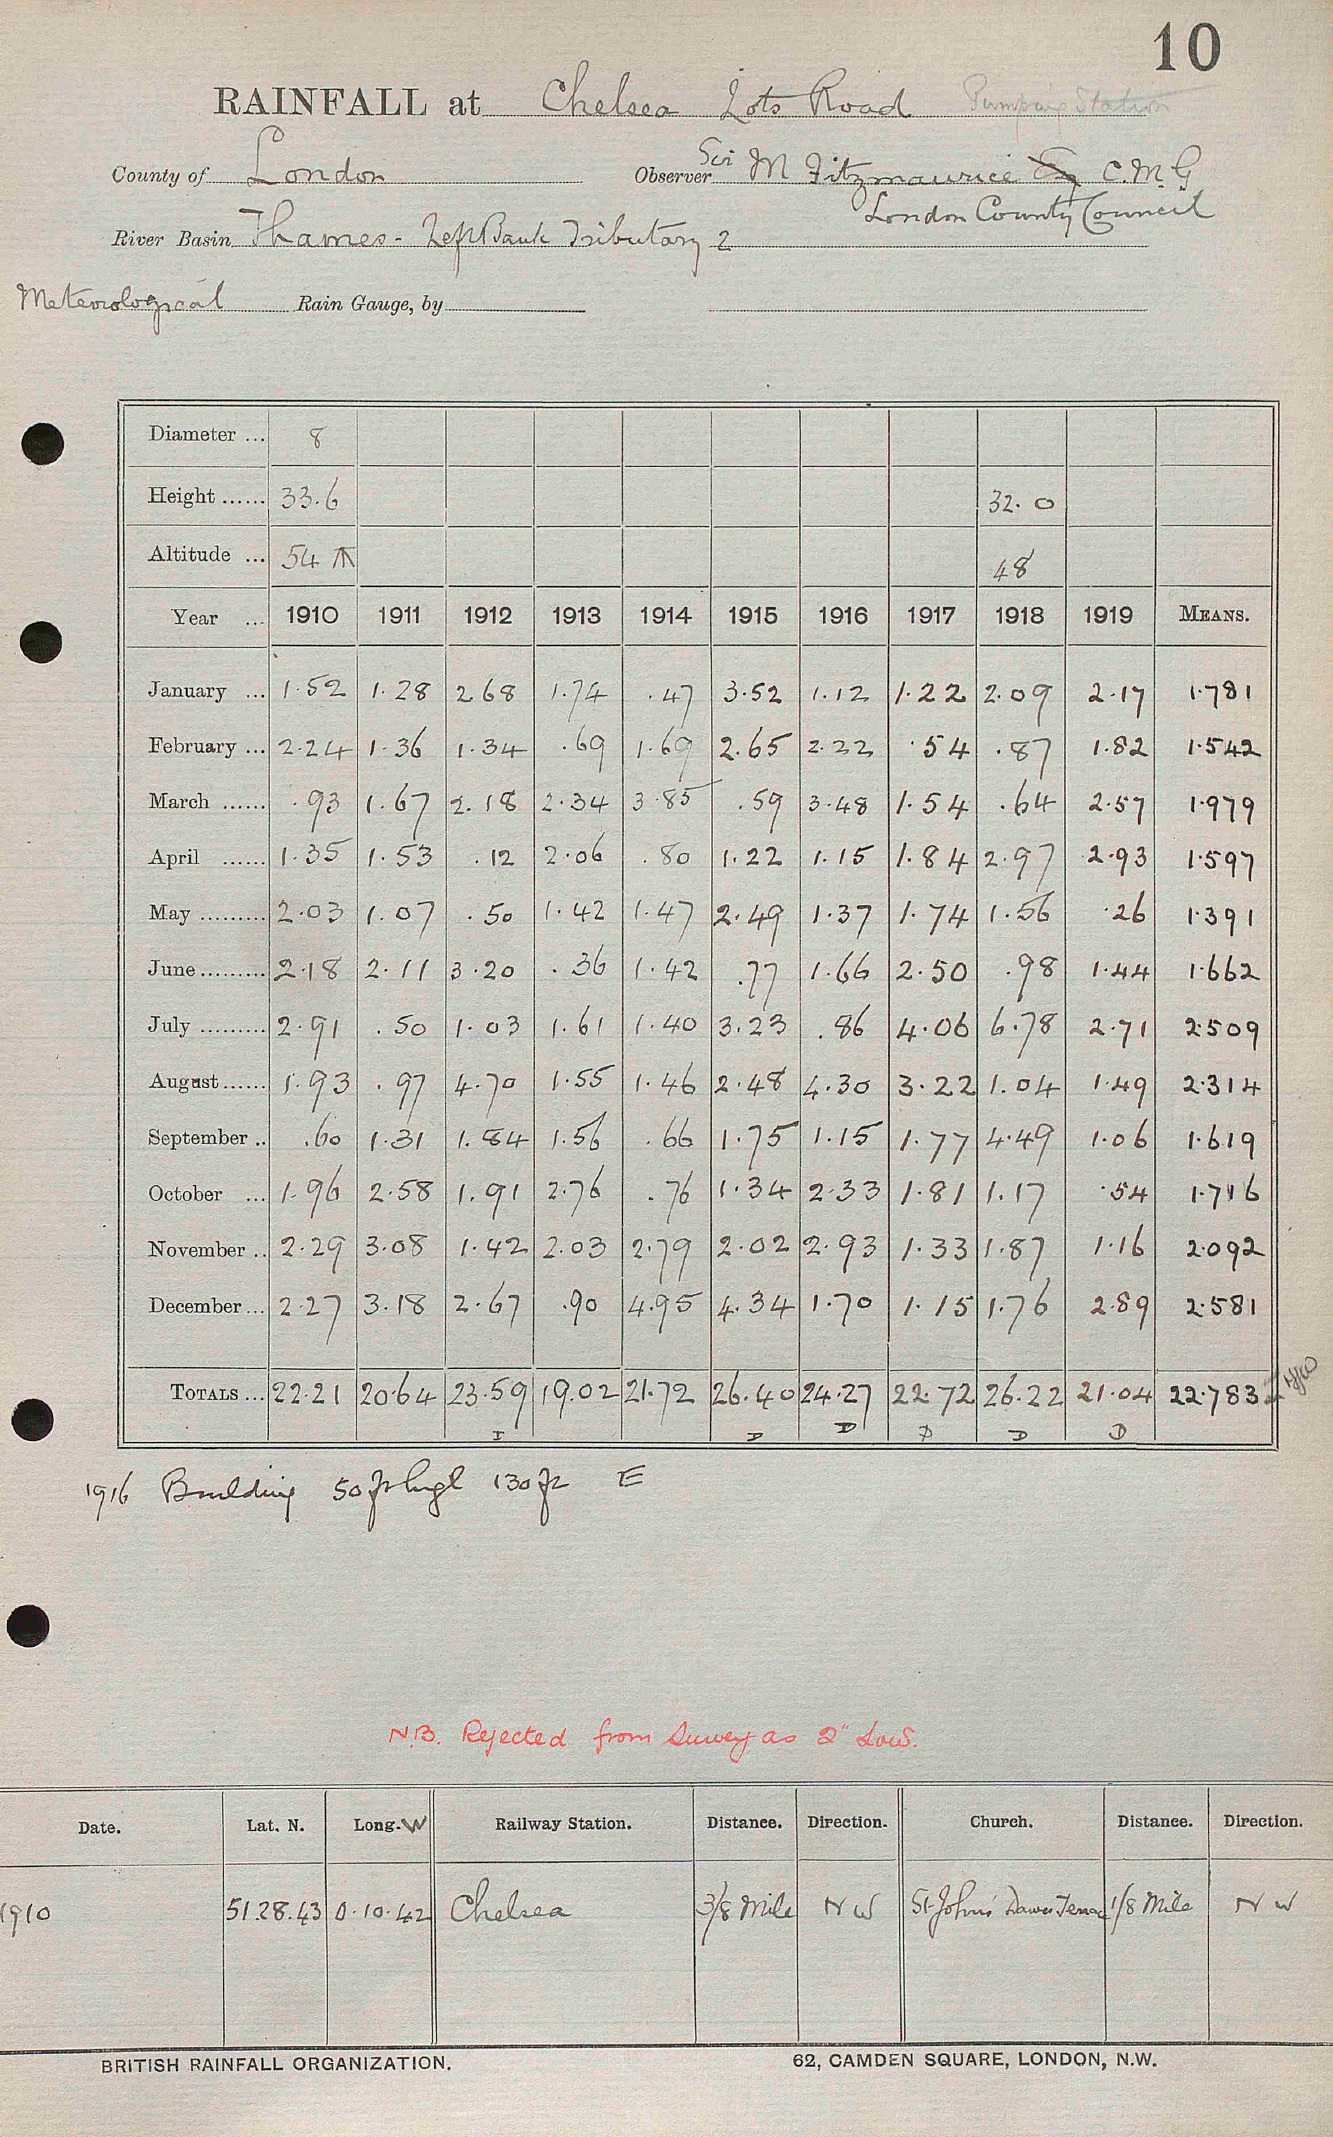 10
RAINFALL at Chelsea Lots Road Pumping Station
County of London Observer Sir M Fitzmaurice C.M.G
London County Council
River Basin Thames - Left Bank Tributary 2
Meteorological Rain Gauge, by
Diameter ... 8
Height ...... 33.6 32.0
Altitude ... 54 48
Year ... 1910 1911 1912 1913 1914 1915 1916 1917 1918 1919 MEANS.
January ... 1.52 1.28 2.68 1.74 .47 3.52 1.12 1.22 2.09 2.17 1.781
February ... 2.24 1.36 1.34 .69 1.69 2.65 2.22 .54 .87 1.82 1.542
March ...... .93 1.67 2.18 2.34 3.85 .59 3.48 1.54 .64 2.57 1.979
April ...... 1.35 1.53 .12 2.06 .80 1.22 1.15 1.84 2.97 2.93 1.597
May ......... 2.03 1.07 .50 1.42 1.47 2.49 1.37 1.74 1.56 .26 1.391
June ......... 2.18 2.11 3.20 .36 1.42 .77 1.66 2.50 .98 1.44 1.662
July ......... 2.91 .50 1.03 1.61 1.40 3.23 .86 4.06 6.78 2.71 2.509
August ...... 1.93 .97 4.70 1.55 1.46 2.48 4.30 3.22 1.04 1.49 2.314
September .. .60 1.31 1.84 1.56 .66 1.75 1.15 1.77 4.49 1.06 1.619
October ... 1.96 2.58 1.91 2.76 .76 1.34 2.33 1.81 1.17 .54 1.716
November .. 2.29 3.08 1.42 2.03 2.79 2.02 2.93 1.33 1.87 1.16 2.092
December ... 2.27 3.18 2.67 .90 4.95 4.34 1.70 1.15 1.76 2.89 2.581
TOTALS ... 22.21 20.64 23.59 19.02 21.72 26.40 24.27 22.72 26.22 21.04 22.783
I D D D D D
1916 Building 50 ft high 130 ft E
N.B. Rejected from Survey as 2" Low.
Date. Lat. N. Long. W Railway Station. Distance. Direction. Church. Distance. Direction.
1910 51.28.43 0.10.42 Chelsea 3/8 Mile NW St John's 1/8 Mile NW
BRITISH RAINFALL ORGANIZATION. 62, CAMDEN SQUARE, LONDON, N.W.